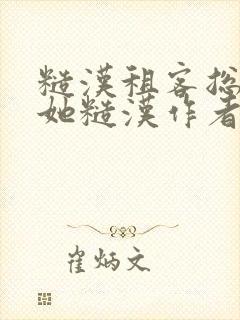 糙漢租客总
她糙漢作者
崔炳文